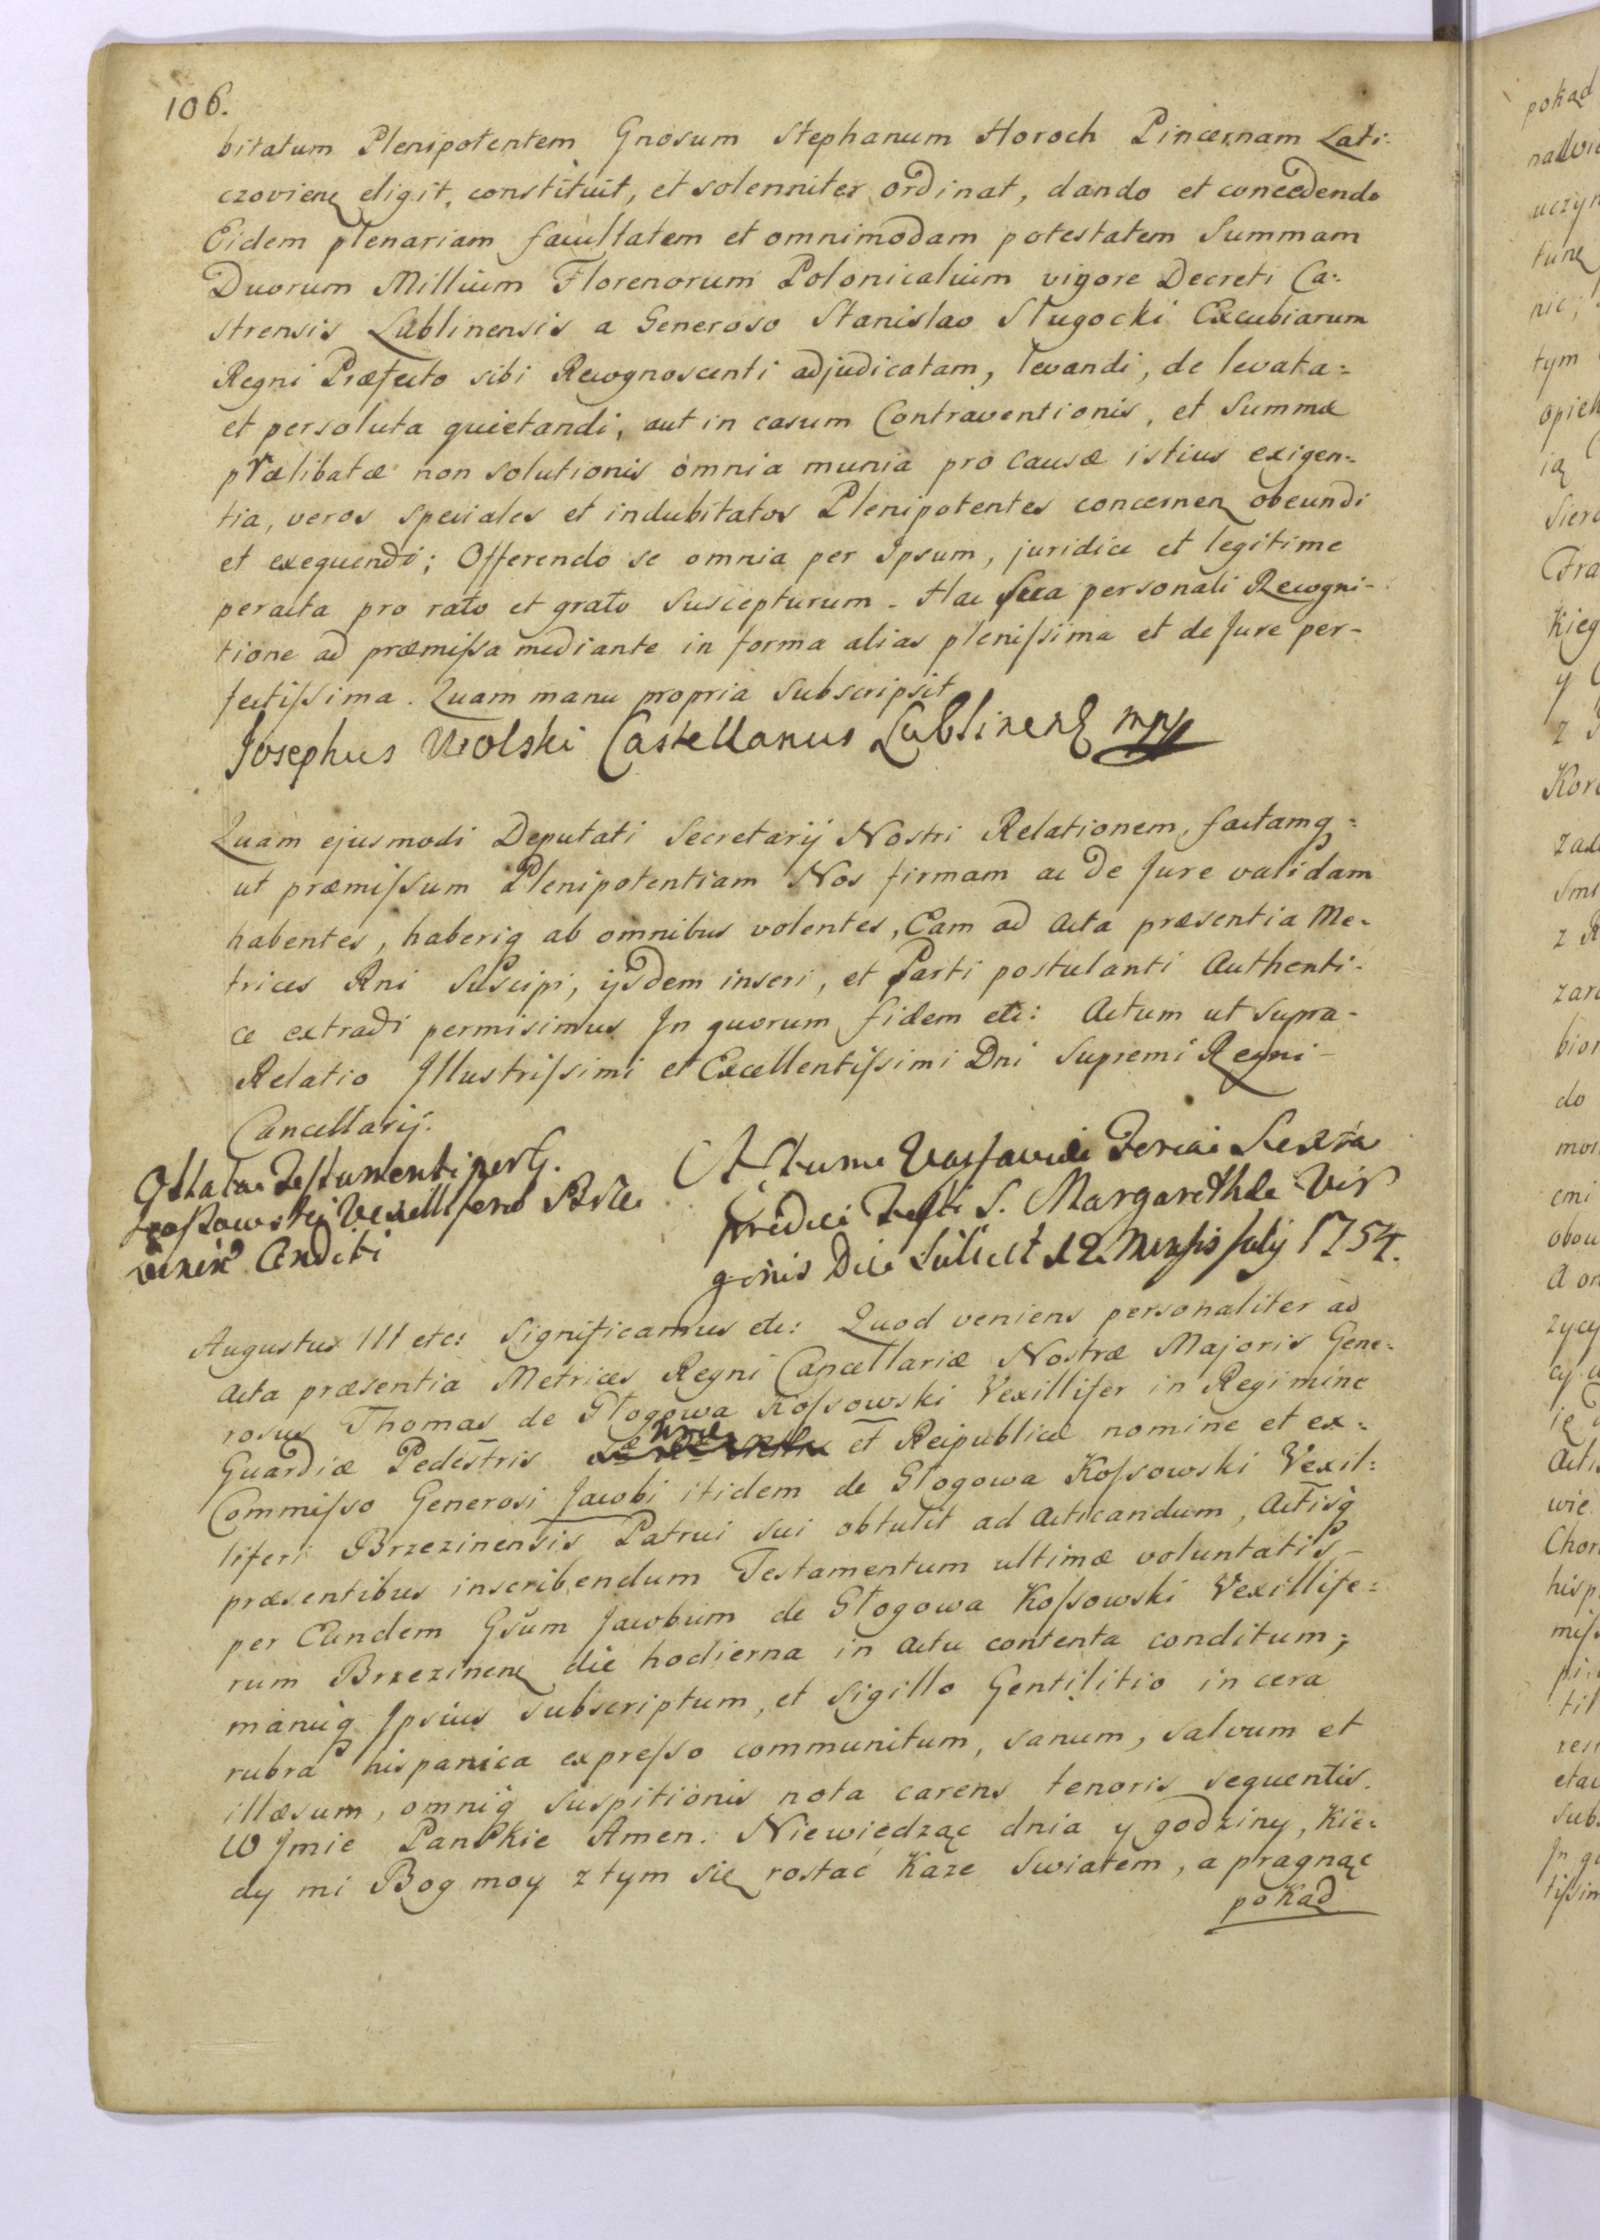 106.
bitatum Plenipotentem Gnosum Stephanum Horoch Pincernam Lati:
czovienę eligit, constituit, et solenniter ordinat, dando et concedendo
Eidem plenariam facultatem et omnimodam potestatem Summam
Duorum Millium Florenorum Polonicalium vigore Decreti Ca:
strensis Lublinensis a Generoso Stanislao Sługocki Excubiarum
Regni Præfecto sibi Recognoscenti adjudicatam, levandi, de levata=
et persoluta quietandi, aut in casum Contraventionis, et Summæ
prælibatæ non solutionis omnia munia pro causæ istius exigen=
tia, veros speciales et indubitatos Plenipotentes concernenę obeundi
et exequendi; Offerendo se omnia per Ipsum, juridice et legitime
peracta pro rato et grato suscepturum. Hac sua personali Recogni-
tione ad præmissa mediante in forma alias plenissima et de Jure per-
fectissima. Quam manu propria subscripsit
Josephus Wolski Castellanus Lublinenę mpp
Quam ejusmodi Deputati Secretarij Nostri Relationem, factamq=
ut præmissum Plenipotentiam Nos firmam ac de Jure validam
habentes, haberiq ab omnibus volentes, Eam ad Acta præsentia Me-
trices Rni Suscipi, ijsdem inseri, et Parti postulanti Authenti-
ce extradi permisimus In quorum fidem etc: Actum ut supra-
Relatio Illustrissimi et Excellentissimi Dni Supremi Regni-
Cancellarij.
Oblata Testamenti per G.
Kossowski Vexilliferū Brze
zinenę Conditi
Actum Varsaviæ Feria Sexta
pridie Festi S. Margarethæ Vir
ginis Die scilicet 12 Mensis Julij 1754.
Augustus III etc: Significamus etc: Quod veniens personaliter ad
Acta præsentia Metrices Regni Cancellariæ Nostræ Majoris Gene-
rosus Thomas de Głogowa Kossowski Vexillifer in Regimine
Guardiæ Pedestris et Reipublicæ nomine et ex=
Commisso Generosi Jacobi itidem de Głogowa Kossowski Vexil=
liferi Brzezinensis Patrui sui obtulit ad Acticandum, Actisq
præsentibus inscribendum Testamentum ultimæ voluntatis-
per Eundem Gsum Jacobum de Głogowa Kossowski Vexillife=
rum Brzezinenę die hodierna in Actu contenta conditum;
manuq Ipsius subscriptum, et Sigillo Gentilitio in cera
rubra hispanica expresso communitum, sanum, salvum et
illæsum, omniq suspitionis nota carens tenoris sequentis.
W Jmie Panskie Amen. Niewiedząc dnia y godziny, kie-
dy mi Bog moy z tym się rostać Kaze swiatem, a pragnąc
pokąd
pokąd
tunę
nic;
tym
ią
y
z
do